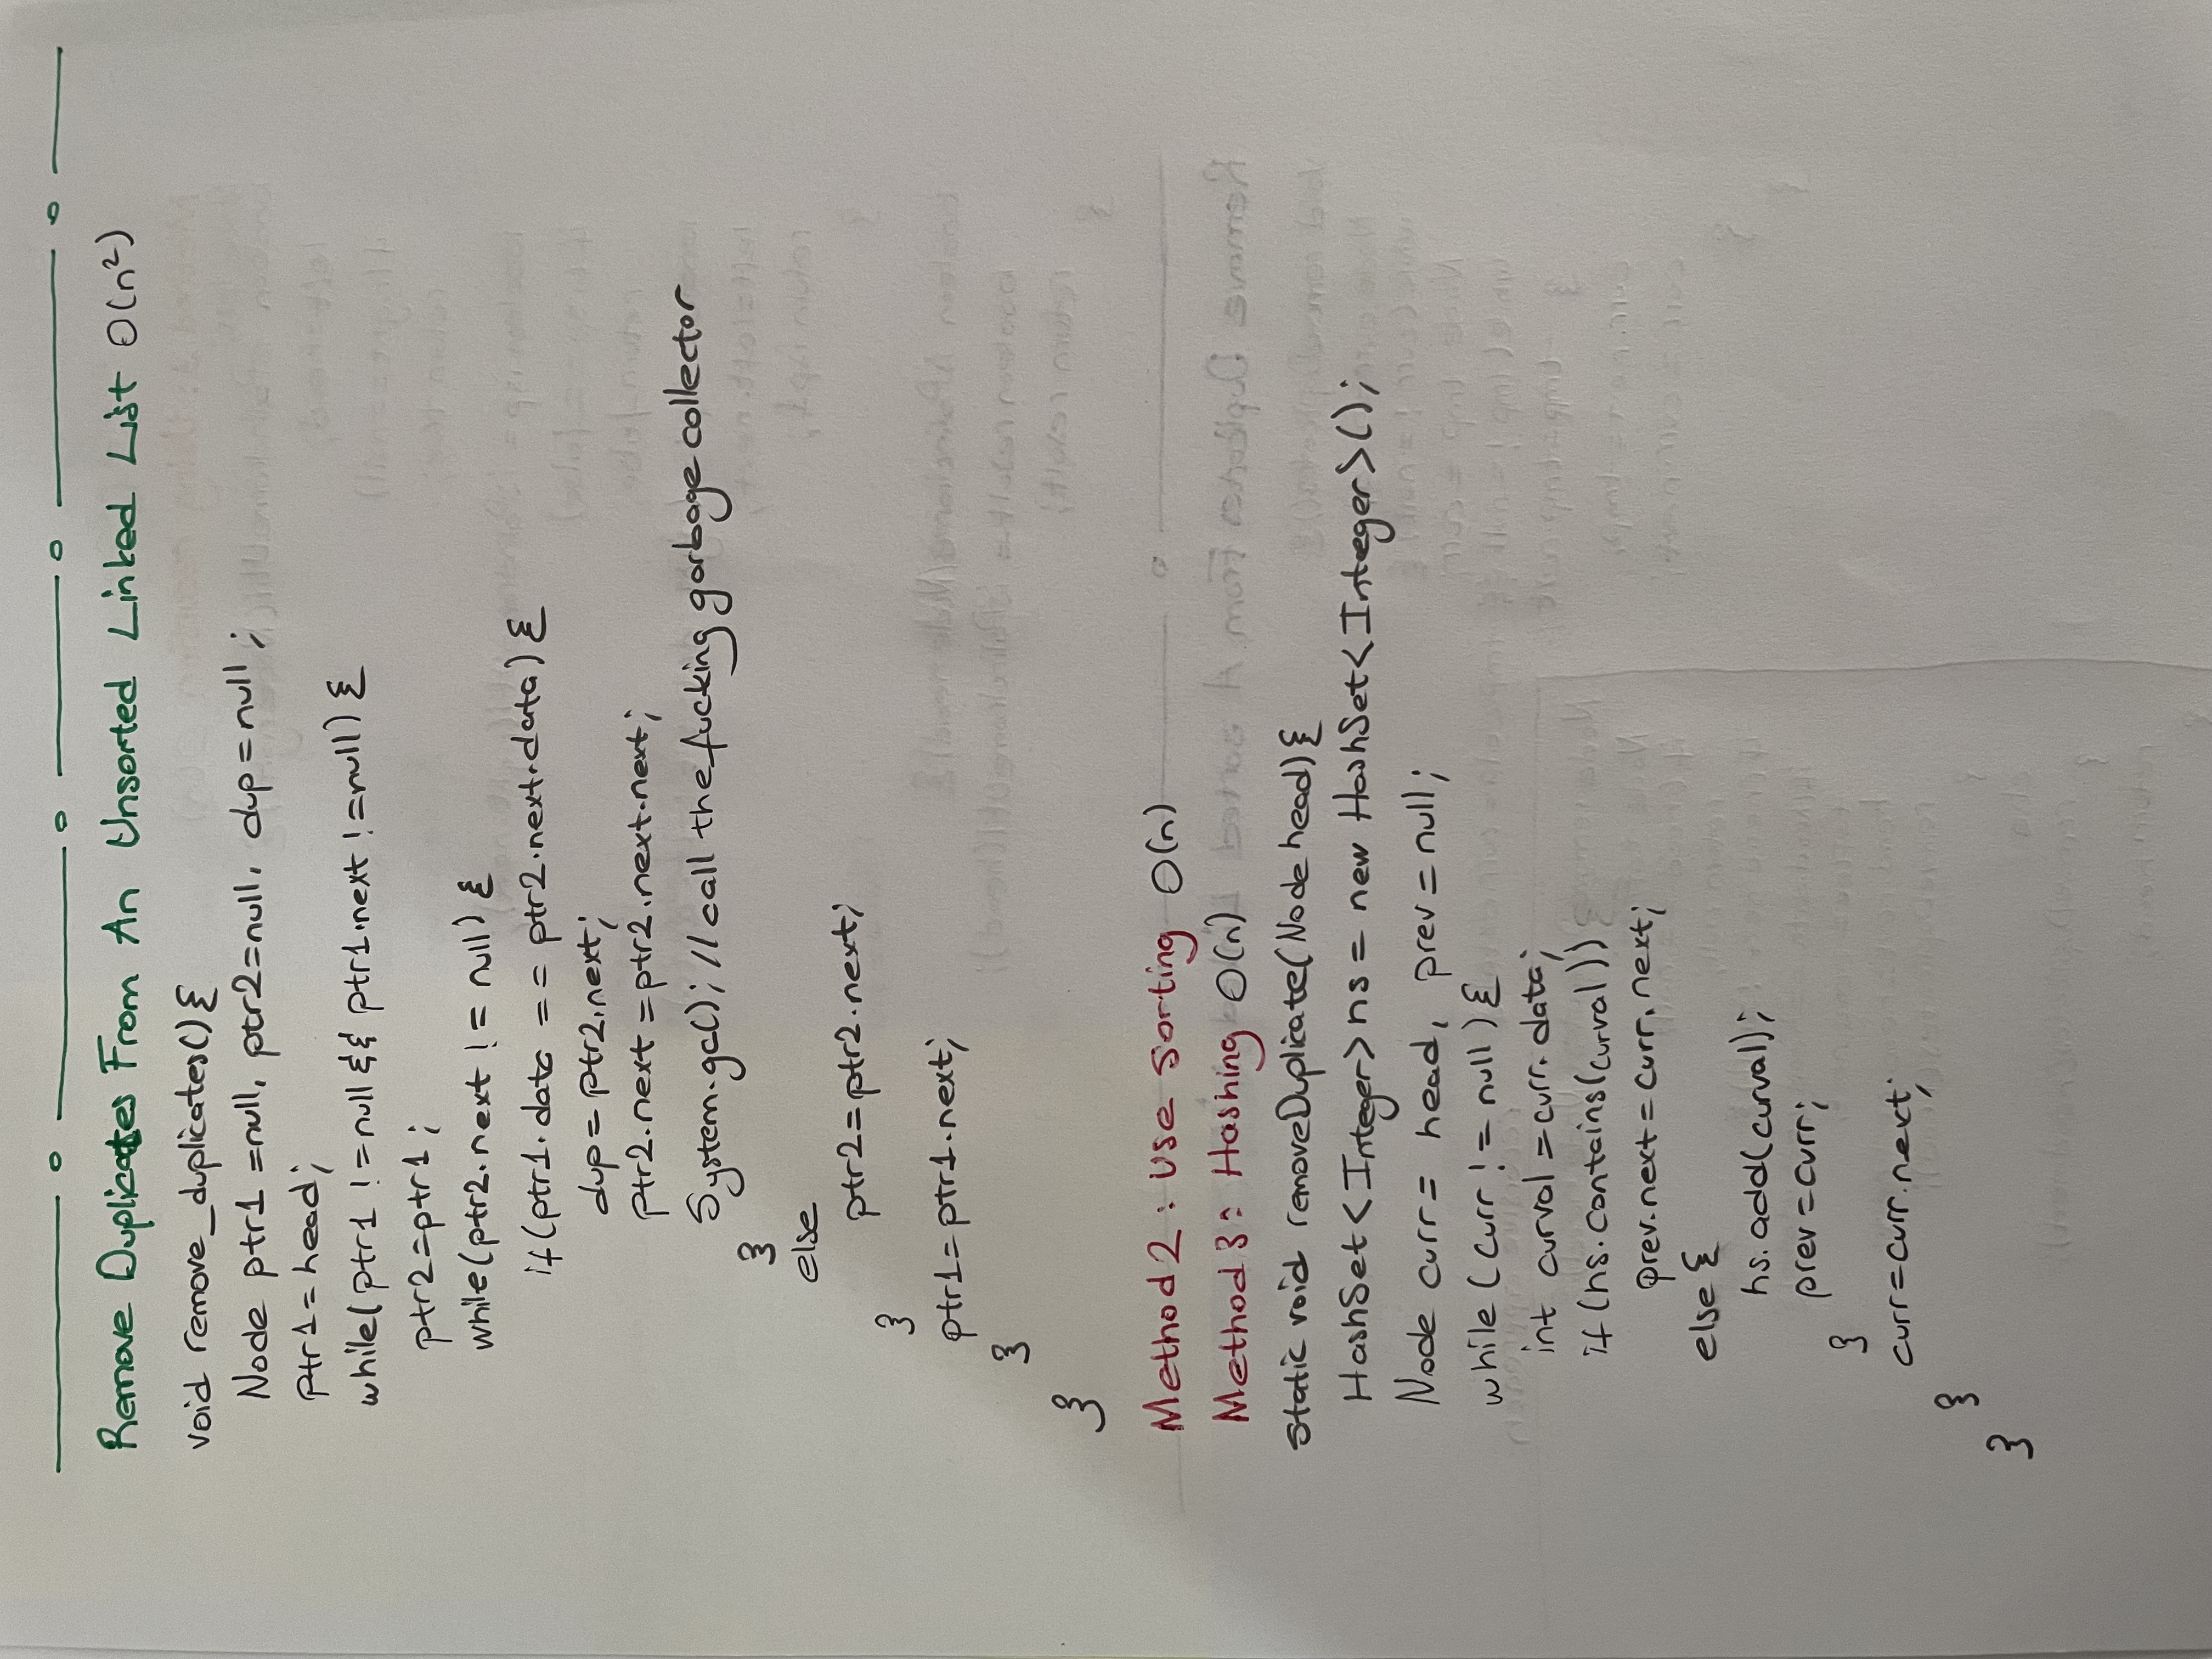 Remove Duplicates From An Unsorted Linked List O(n²)
void remove_duplicates(){
Node ptr1 =null, ptr2=null, dup=null;
ptr1=head;
while(ptr1 !=null && ptr1.next !=null) {
ptr2=ptr1;
while(ptr2.next != null) {
if(ptr1.data == ptr2.next.data) {
dup= ptr2.next;
ptr2.next =ptr2.next.next;
System.gc(); //call the fucking garbage collector
}
else
ptr2=ptr2.next;
}
ptr1=ptr1.next;
}
}
Method 2: Use Sorting O(n)
Method 3: Hashing O(n)
static void removeDuplicate(Node head){
HashSet<Integer> hs = new HashSet<Integer>();
Node curr= head, prev=null;
while (curr != null){
int curval =curr.data;
if (hs.contains(curval))
prev.next=curr.next;
else {
hs.add(curval);
prev=curr;
}
curr=curr.next;
}
}